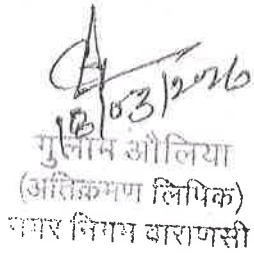 18/03/2026
गुलाम औलिया
(अतिक्रमण लिपिक)
नगर निगम वाराणसी